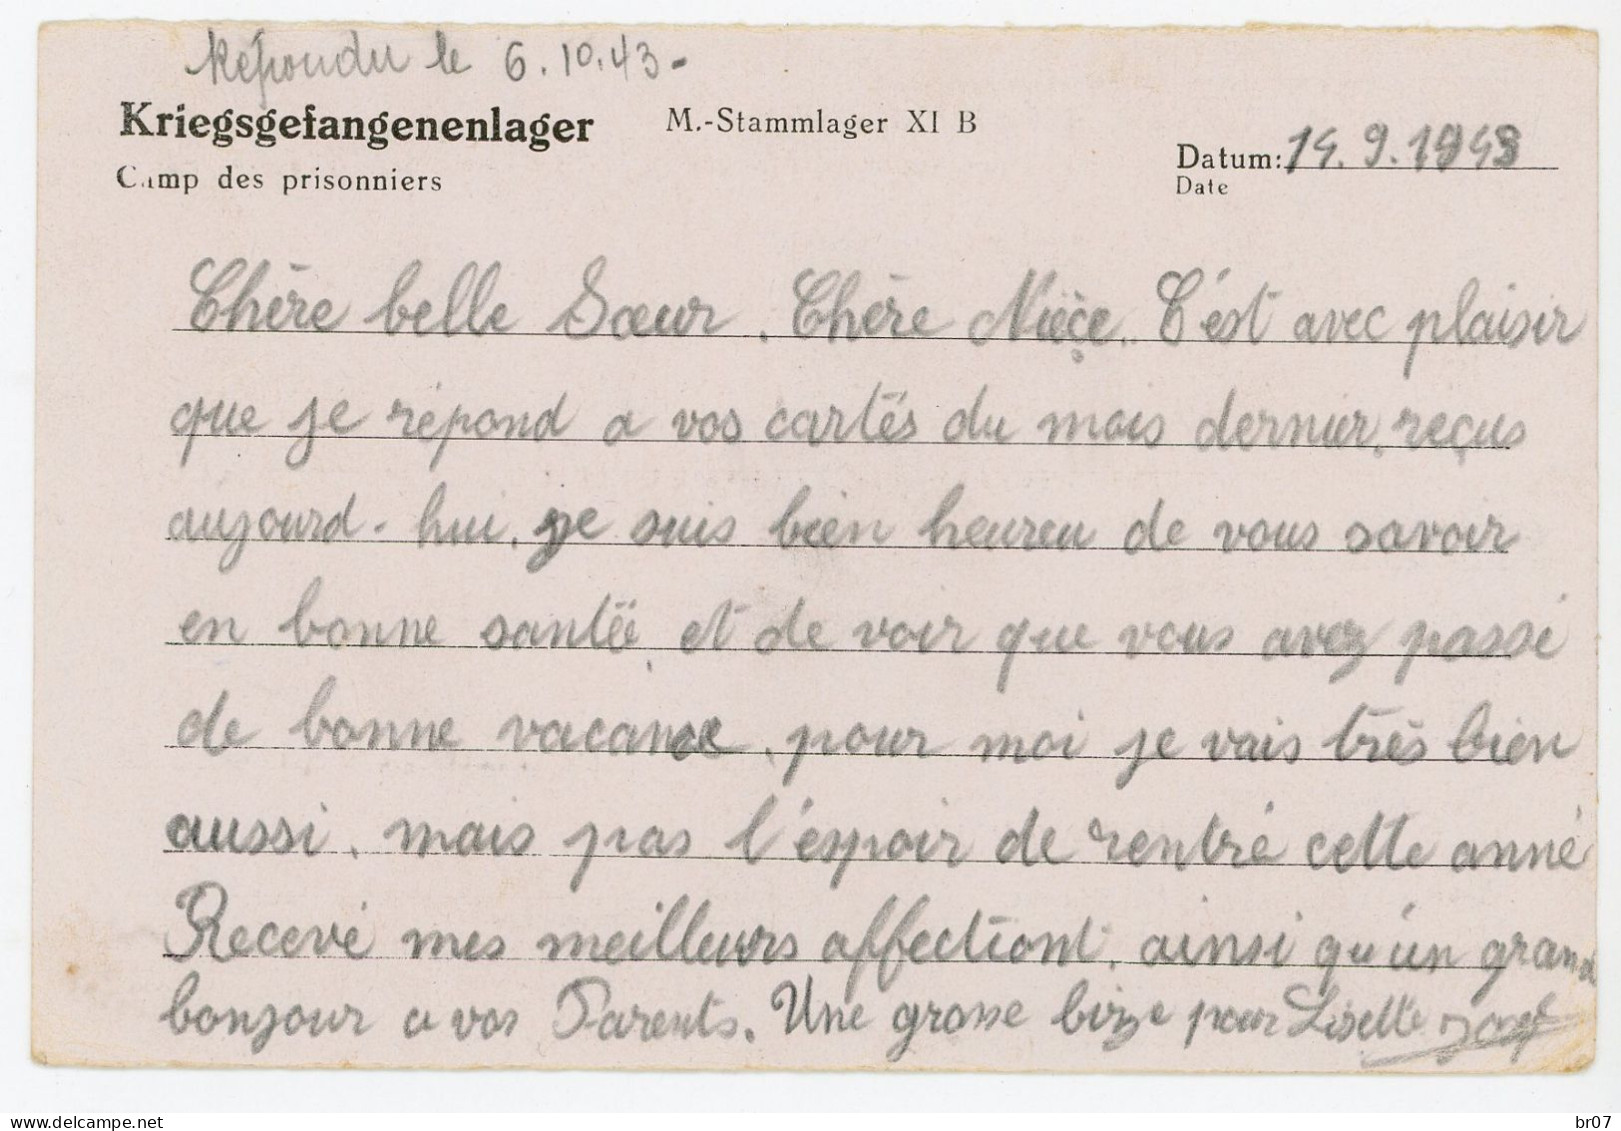 Répondu le 6.10.43-
Kriegsgefangenenlager M.-Stammlager XI B
Camp des prisonniers
Datum: 14.9.1943
Date
Chère belle Sœur. Chère Nièçe. C'ést avec plaisir
que je répond a vos cartés du mois dernier, reçus
aujourd-hui. je suis bien heureu de vous savoir
en bonne santée, et de voir que vous avez passé
de bonne vacance, pour moi je vais très bien
aussi. mais pas l'éspoir de rentré cette anné
Recevé mes meilleurs affectiont. ainsi qu'un grand
bonjour a vos Parents. Une grosse bize pour Liselle Josef
delcampe.net
br07